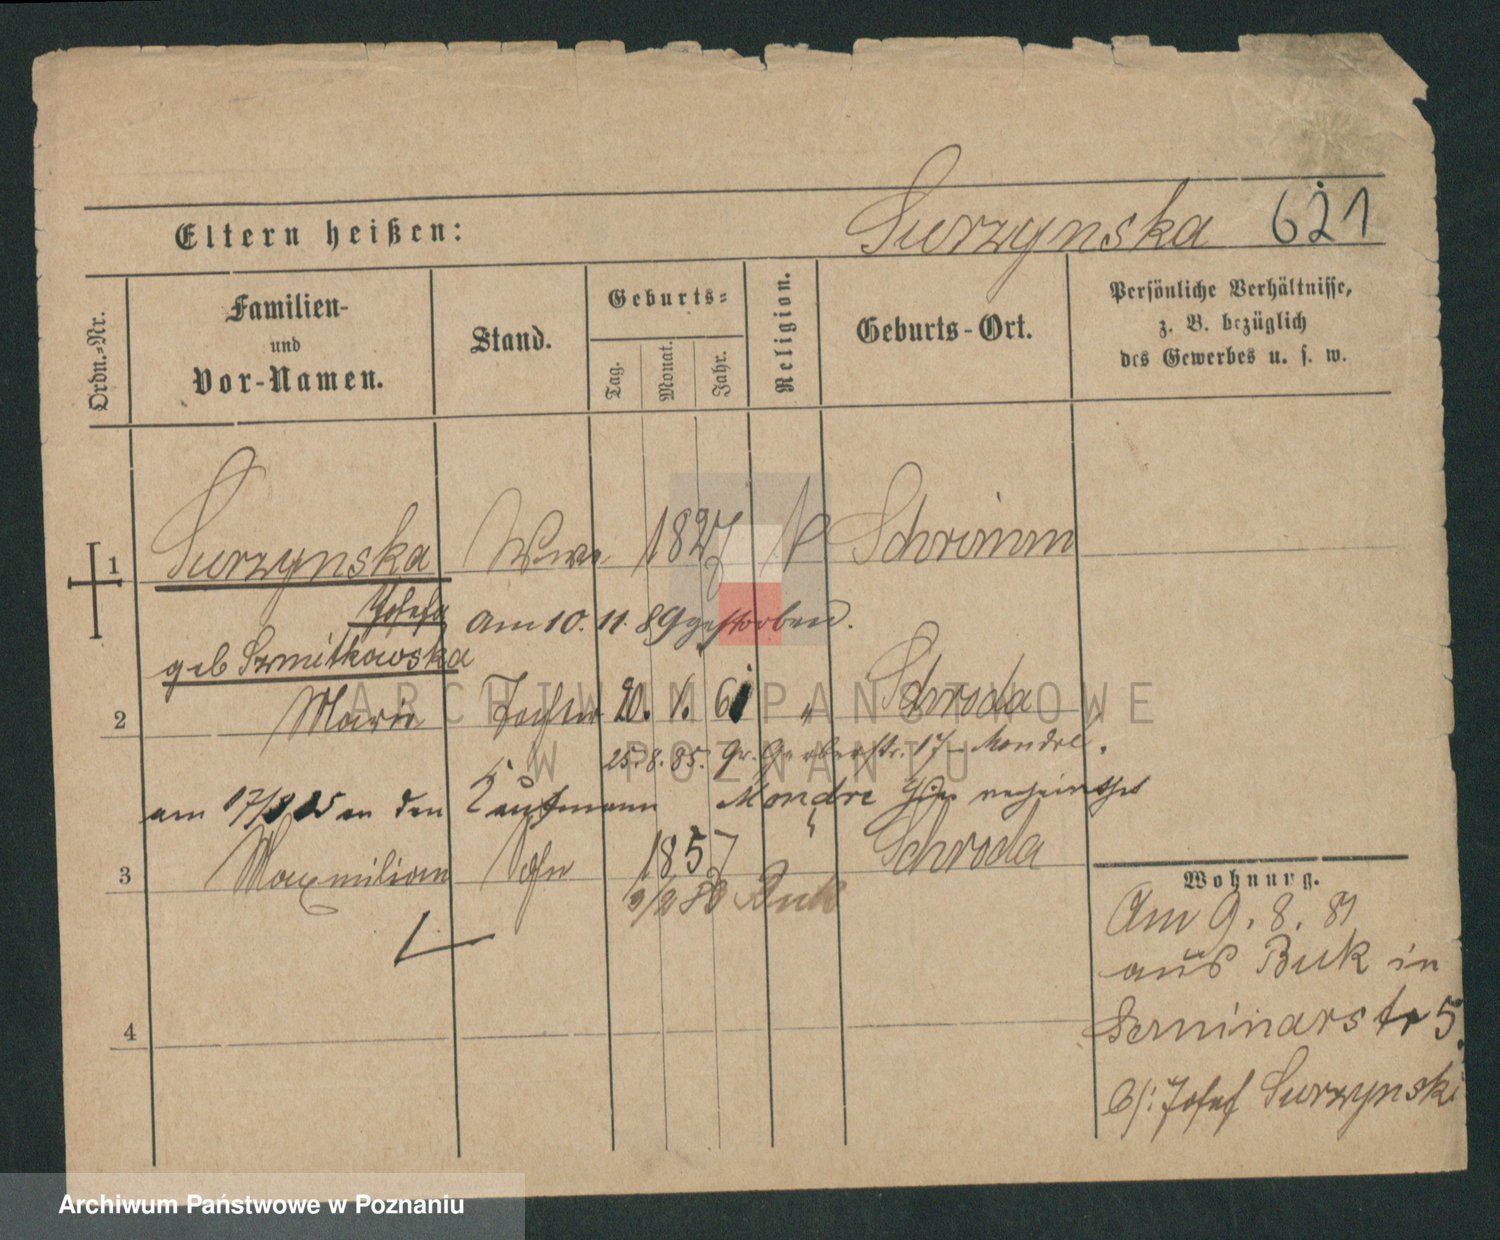 Eltern heißen:
Surzynska 621
Ordn.-Nr.
Familien-
und
Vor-Namen.
Stand.
Geburts-
Tag.
Monat.
Jahr.
Religion.
Geburts-Ort.
Persönliche Verhältnisse,
z. B. bezüglich
des Gewerbes u. s. w.
1 Surzynska Wwe 1827 Schrimm
Josefa am 10. 11. 89 gestorben.
geb Szmitkowska
2 Marie Tochter 20. 61 " Schroda
25. 8. 85. Gr. Gerberstr. 17 - Mondré.
am 17/8 85 an den Kaufmann Mondré
3 Maxmilian Sohn 1857 " Schroda
Buk
4
Wohnung.
Am 9. 8. 81
aus Buk in
Seminarstr 5.
b/: Josef Surzynski
ARCHIWUM PAŃSTWOWE
W POZNANIU
Archiwum Państwowe w Poznaniu